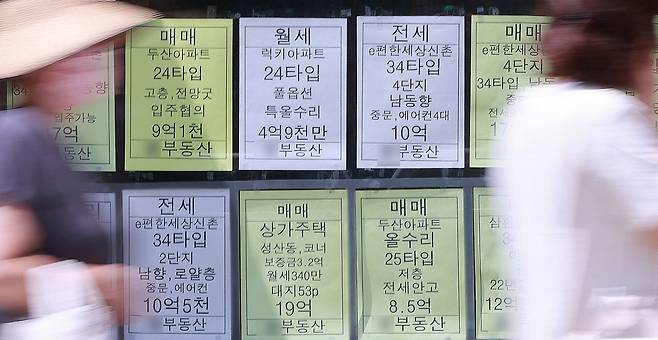 향
입주가능
억
부동산
매매
두산아파트
24타입
고층,전망굿
입주협의
9억1천
부동산
월세
럭키아파트
24타입
풀옵션
특올수리
4억9천만
부동산
전세
e편한세상신촌
34타입
4단지
남동향
중문,에어컨4대
10억
부동산
매매
e편한세상
4단지
34타입
전세
17
부동산
전세
e편한세상신촌
34타입
2단지
남향,로얄층
중문,에어컨
10억5천
부동산
매매
상가주택
성산동,코너
보증금3.2억
월세340만
대지53p
19억
부동산
매매
두산아파트
올수리
25타입
저층
전세안고
8.5억
부동산
22년
12억
부동산